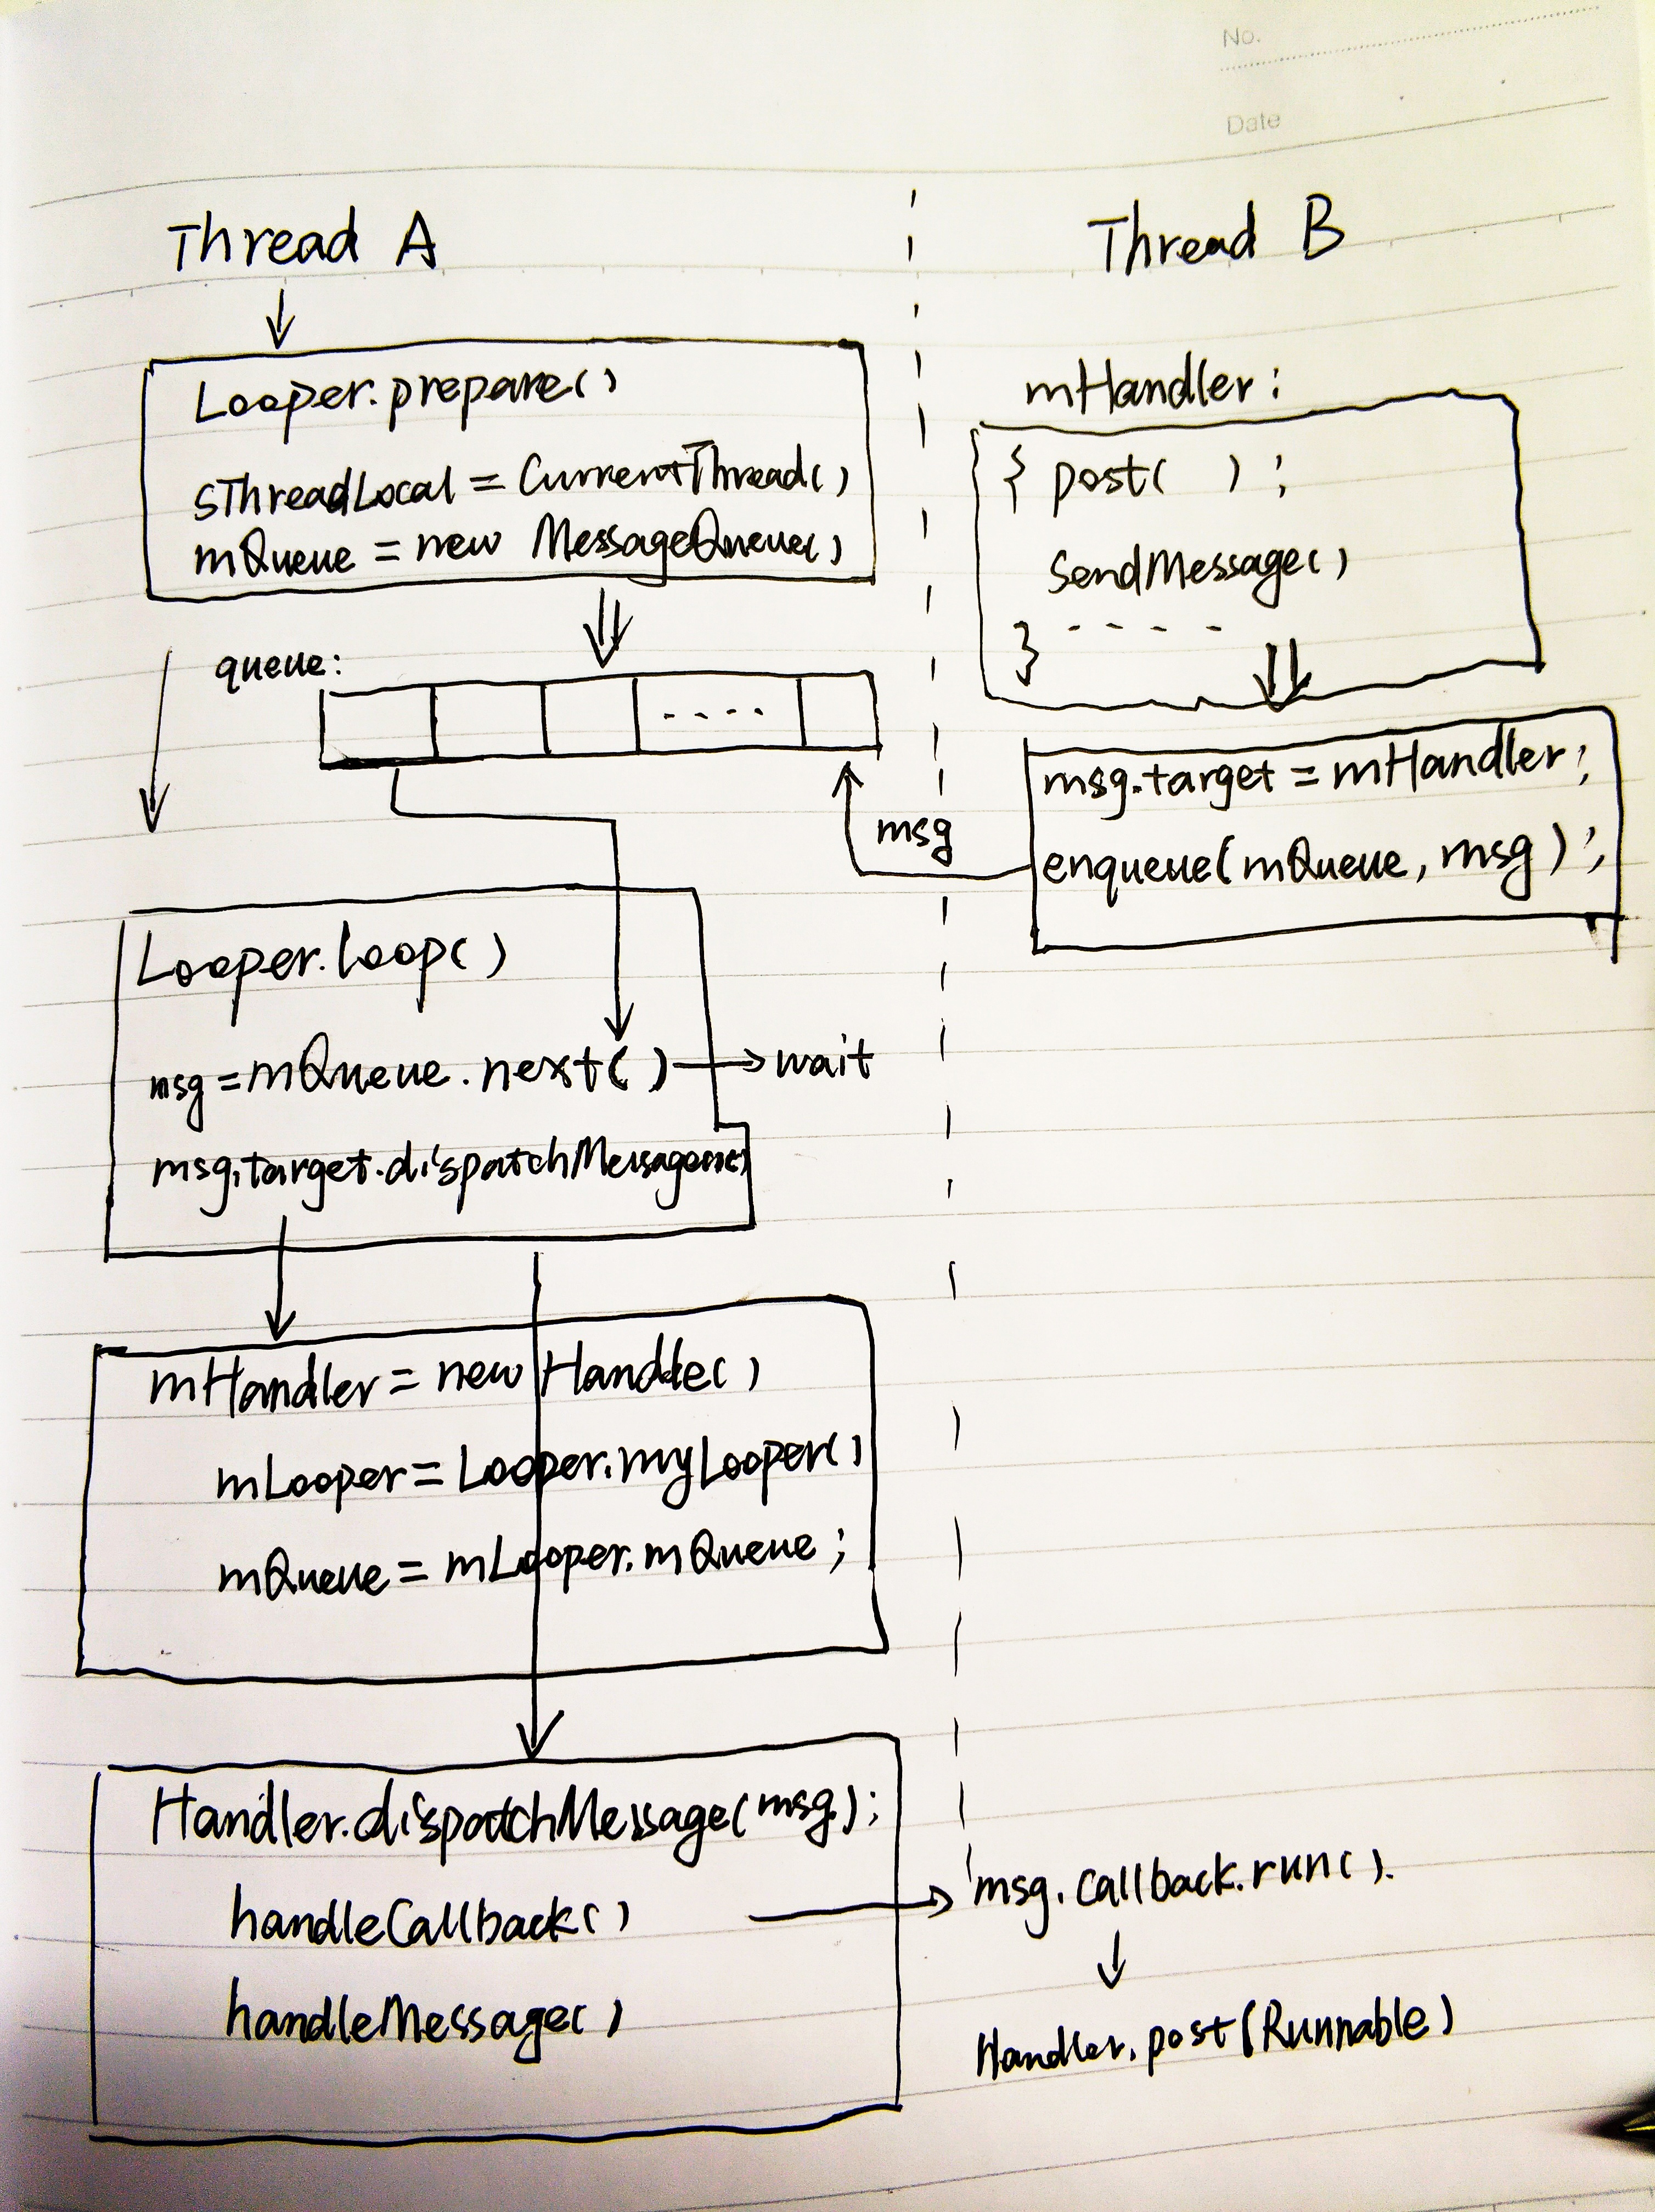 No.
Date
Thread A
Thread B
Looper.prepare()
sThreadLocal = CurrentThread()
mQueue = new MessageQueue()
mHandler:
{ post( );
sendMessage()
} - - - -
queue:
- - - -
msg.target = mHandler;
enqueue(mQueue, msg);
msg
Looper.loop()
msg = mQueue.next() → wait
msg.target.dispatchMessage
mHandler = new Handle()
mLooper = Looper.myLooper()
mQueue = mLooper.mQueue;
Handler.dispatchMessage(msg);
handleCallback() → msg.callback.run().
handleMessage()
Handler.post(Runnable)